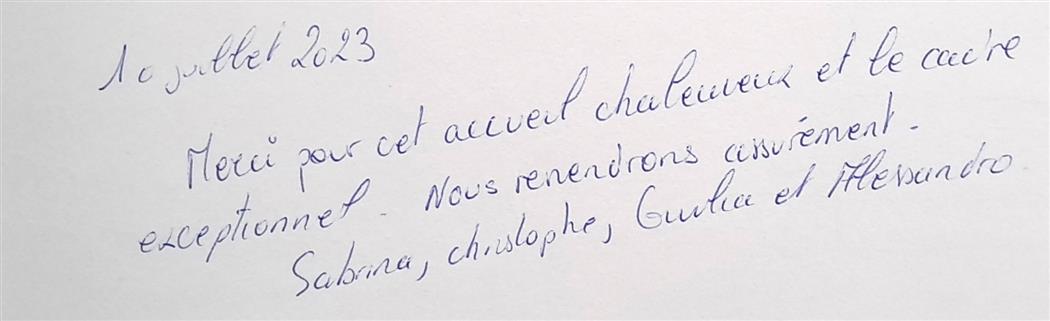 10 juillet 2023
Merci pour cet accueil chaleureux et le cadre
exceptionnel. Nous reviendrons assurément.
Sabrina, christophe, Giulia et Alessandro.